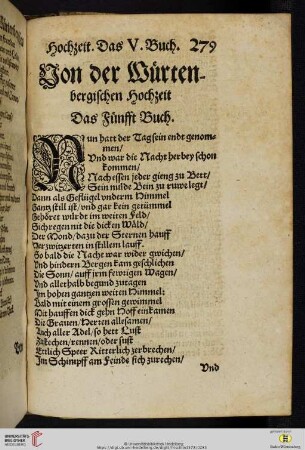 Hochzeit. Das V. Buch. 279
Von der Würten-
bergischen Hochzeit
Das Fünfft Buch.
Nun hatt der Tag sein endt genom-
men/
Vnd war die Nacht herbey schon
kommen/
Nach essen jeder gieng zu Bett/
Sein müde Bein zu ruwe legt/
Dann als Geflügel vnderm Himmel
Gantz still ist/ vnd gar kein getümmel
Gehöret wirdt im weiten Feld/
Sich regen mit die dicken Wäld/
Der Mond/ dazu der Sternen hauff
Verzwizerten in stillem lauff.
So bald die Nacht war wider gwichen/
Vnd hindern Bergen kam geschlichen
Die Sonn/ auff jrm fewrigen Wagen/
Vnd allerhalb begund zutagen
Im hohen gantzen weiten Himmel:
Bald mit einem grossen gewimmel
Mit hauffen dick gehn Hoff einkamen
Die Grauen/ Herren allesamen/
Auch aller Adel/ so hett Lust
Zustechen/ rennen/ oder sust
Etlich Speer Ritterlich zerbrechen/
Im Schimpff am Feinde sich zurechen/
Vnd